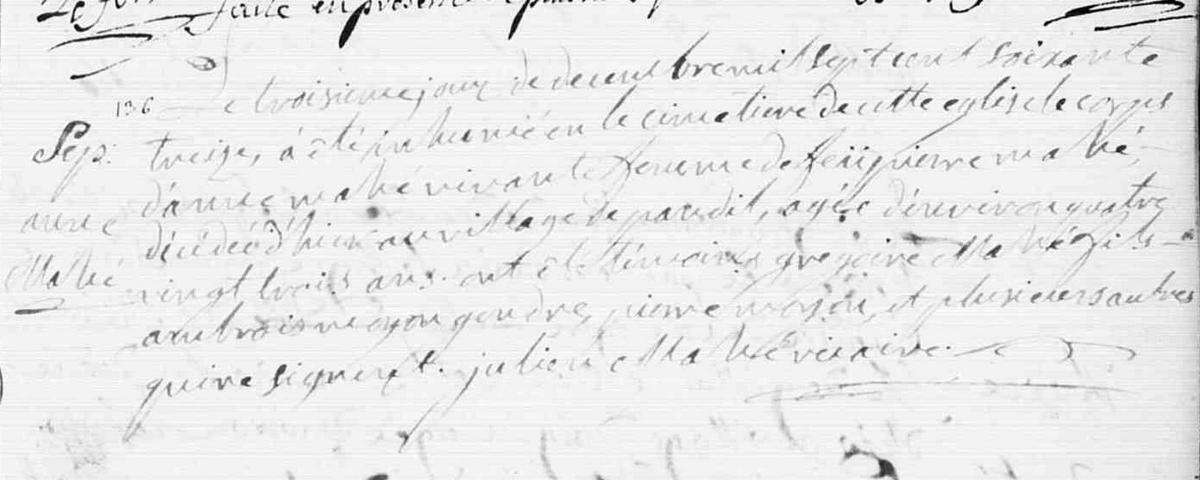 faite en presence
136 Le troisieme jour de decembre mil sept cent soixante
Sep. treize, á été inhumée en le cimetiere de cette eglise le corps
d'anne mahé vivante femme de feü pierre mahé,
anne décédéé d'hier au village de paradit, agée d'environ quatre
Mahé vingt trois ans. ont été témoins gregoire Mahé fils
ambrois moyon gendre, pierre moyon, et plusieurs autres
qui ne signent. julien Mahé vicaire.